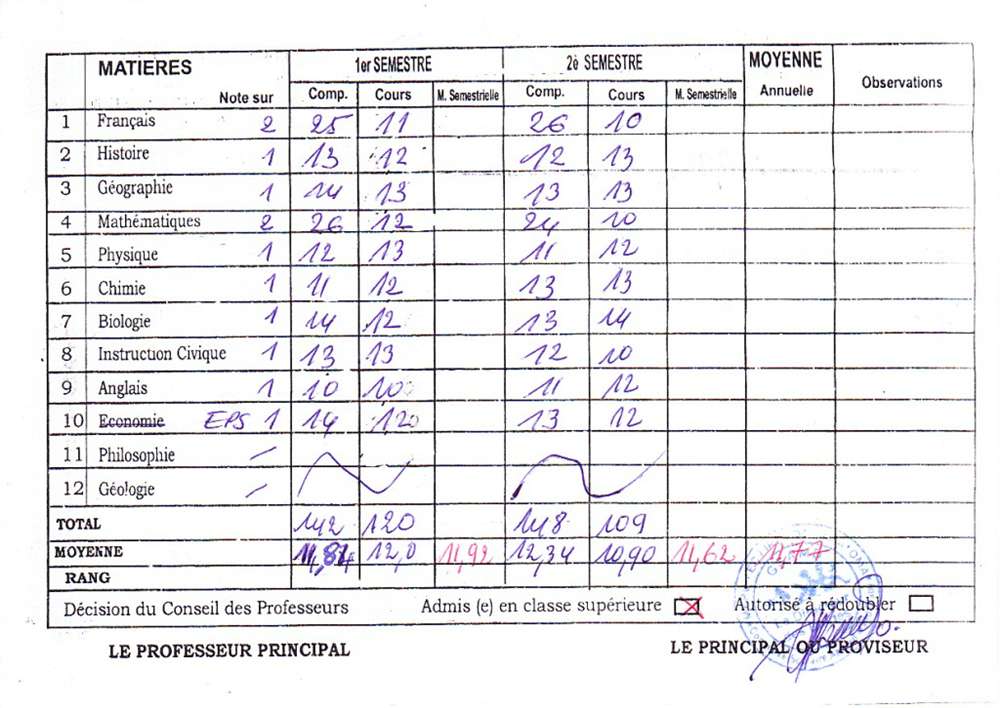 MATIERES Note sur 1er SEMESTRE 2è SEMESTRE MOYENNE Annuelle Observations
Comp. Cours M. Semestrielle Comp. Cours M. Semestrielle
1 Français 2 25 11 26 10
2 Histoire 1 13 12 12 13
3 Géographie 1 14 13 13 13
4 Mathématiques 2 26 12 24 10
5 Physique 1 12 13 11 12
6 Chimie 1 11 12 13 13
7 Biologie 1 14 12 13 14
8 Instruction Civique 1 13 13 12 10
9 Anglais 1 10 10 11 12
10 Economie EPS 1 14 120 13 12
11 Philosophie
12 Géologie
TOTAL 142 120 148 109
MOYENNE 11,84 12,0 11,92 12,34 10,90 11,62 11,77
RANG
Décision du Conseil des Professeurs Admis (e) en classe supérieure Autorisé à rédoubler
LE PROFESSEUR PRINCIPAL LE PRINCIPAL OU PROVISEUR